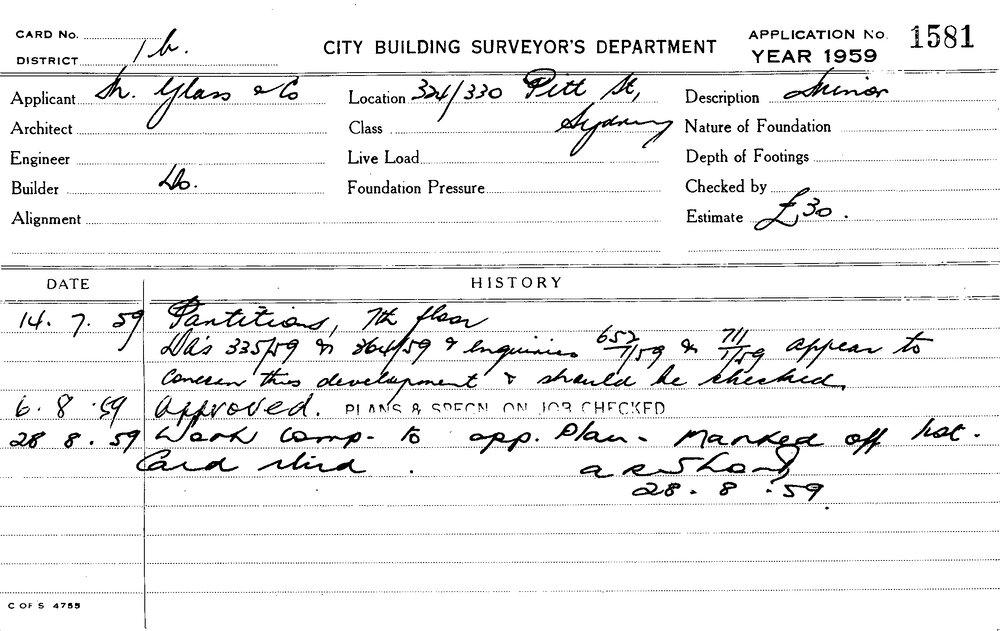 CARD No.
DISTRICT 1b.
CITY BUILDING SURVEYOR'S DEPARTMENT
APPLICATION No. 1581
YEAR 1959
Applicant M. Glass & Co
Location 324/330 Pitt St,
Description Minor
Architect
Class Sydney
Nature of Foundation
Engineer
Live Load
Depth of Footings
Builder Do.
Foundation Pressure
Checked by
Alignment
Estimate £30.
DATE HISTORY
14. 7. 59 Partitions, 7th floor
DA's 335/59 & 364/59 & enquiries 652/1/59 & 711/1/59 appear to
concern this development & should be checked.
6. 8. 59 Approved. PLANS & SPECN. ON JOB CHECKED
28 8. 59 Work comp. to app. Plan. Marked off list.
Card
28. 8. 59.
C OF S 4755